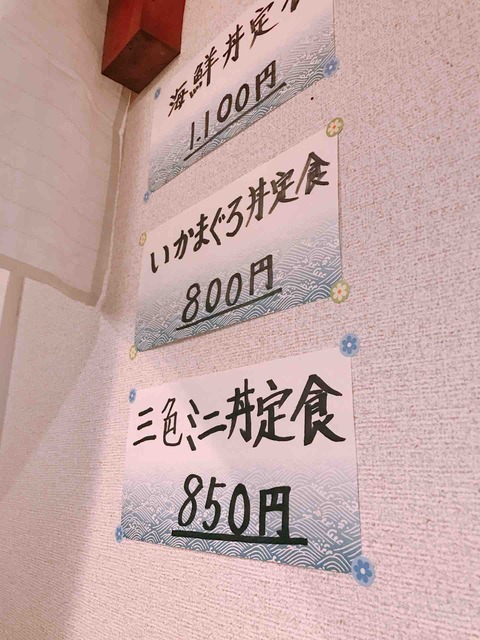 海鮮丼定食
1.100円
いかまぐろ丼定食
800円
三色ミニ丼定食
850円